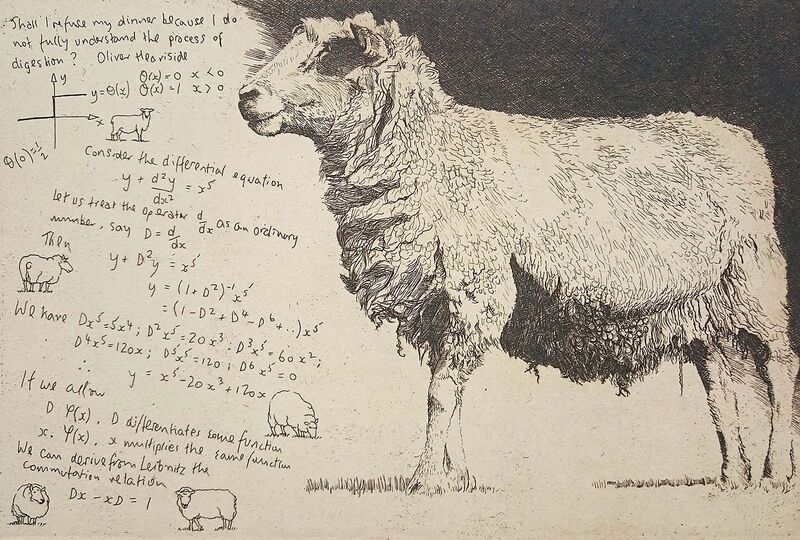 Shall I refuse my dinner because I do
not fully understand the process of
digestion? Oliver Heaviside
y
y=Θ(x)
Θ(x)=0 x<0
Θ(x)=1 x>0
x
Θ(0)=½
Consider the differential equation
y + d²y/dx² = x⁵
Let us treat the operator d/dx as an ordinary
number, say D = d/dx
Then
y + D²y = x⁵
y = (1+D²)⁻¹x⁵
= (1-D²+D⁴-D⁶+..)x⁵
We have Dx⁵=5x⁴; D²x⁵=20x³; D³x⁵=60x²;
D⁴x⁵=120x; D⁵x⁵=120; D⁶x⁵=0
∴ y = x⁵-20x³+120x
If we allow
D φ(x), D differentiates some function
x. φ(x), x multiplies the same function
We can derive from Leibnitz the
commutation relation
Dx - xD = 1